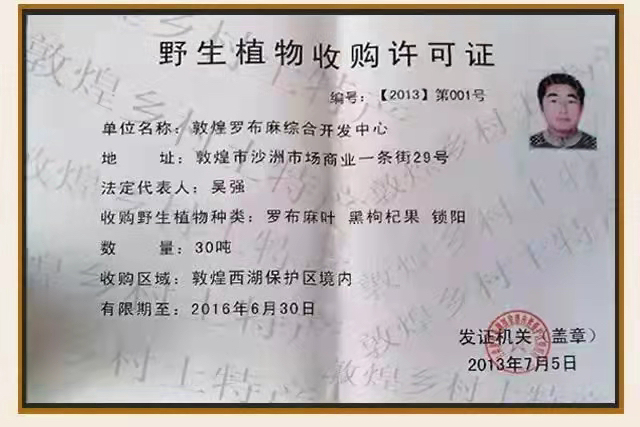 野生植物收购许可证
编号：【2013】第001号
单位名称：敦煌罗布麻综合开发中心
地 址：敦煌市沙洲市场商业一条街29号
法定代表人：吴强
收购野生植物种类：罗布麻叶 黑枸杞果 锁阳
数 量：30吨
收购区域：敦煌西湖保护区境内
有限期至：2016年6月30日
发证机关（盖章）
2013年7月5日
敦煌乡村土特产
敦煌乡村土特产